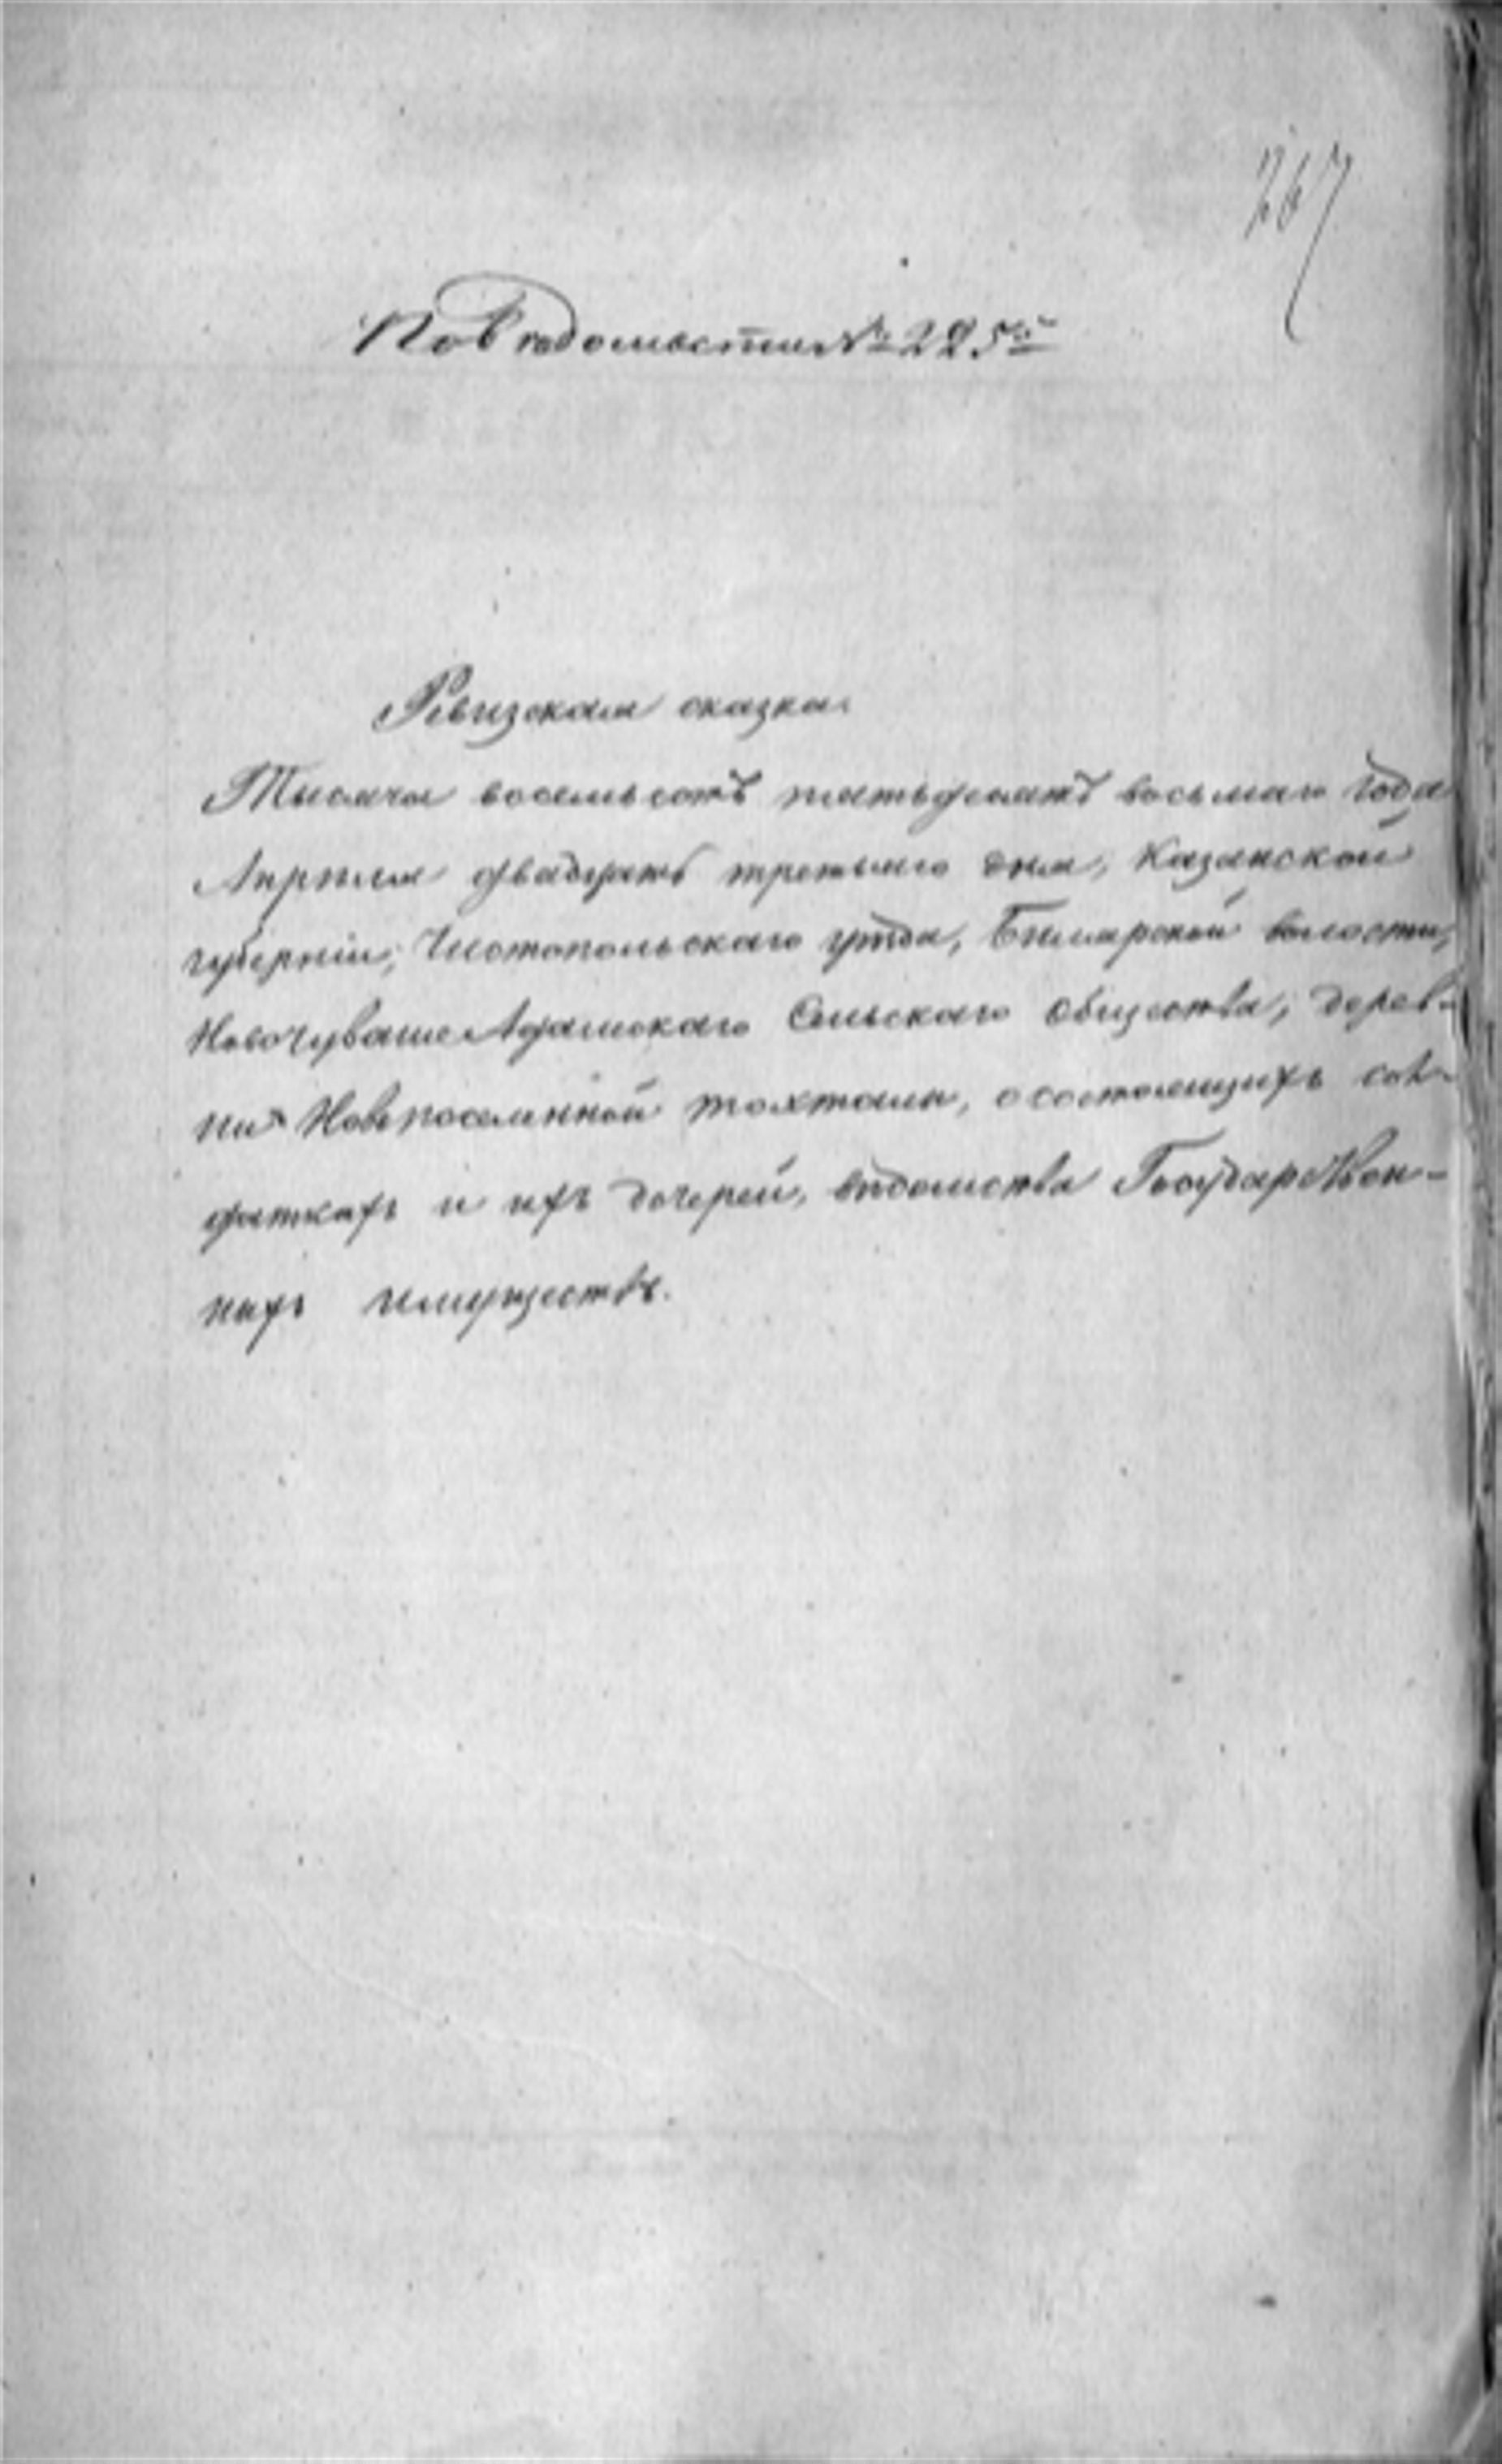 267
По Вѣдомости № 225й
Ревизская сказка
Тысяча восемьсотъ пятьдесятъ восьмаго года
Апрѣля двадцать третьяго дня, Казанской
губерніи, Чистопольскаго уѣзда, Билярской волости,
Новочуваше Адамскаго Сельскаго общества, дерев-
ни Новопоселенной Тахталы, о состоящихъ сол-
даткахъ и ихъ дочерей, вѣдомства Государствен-
ныхъ имуществъ.